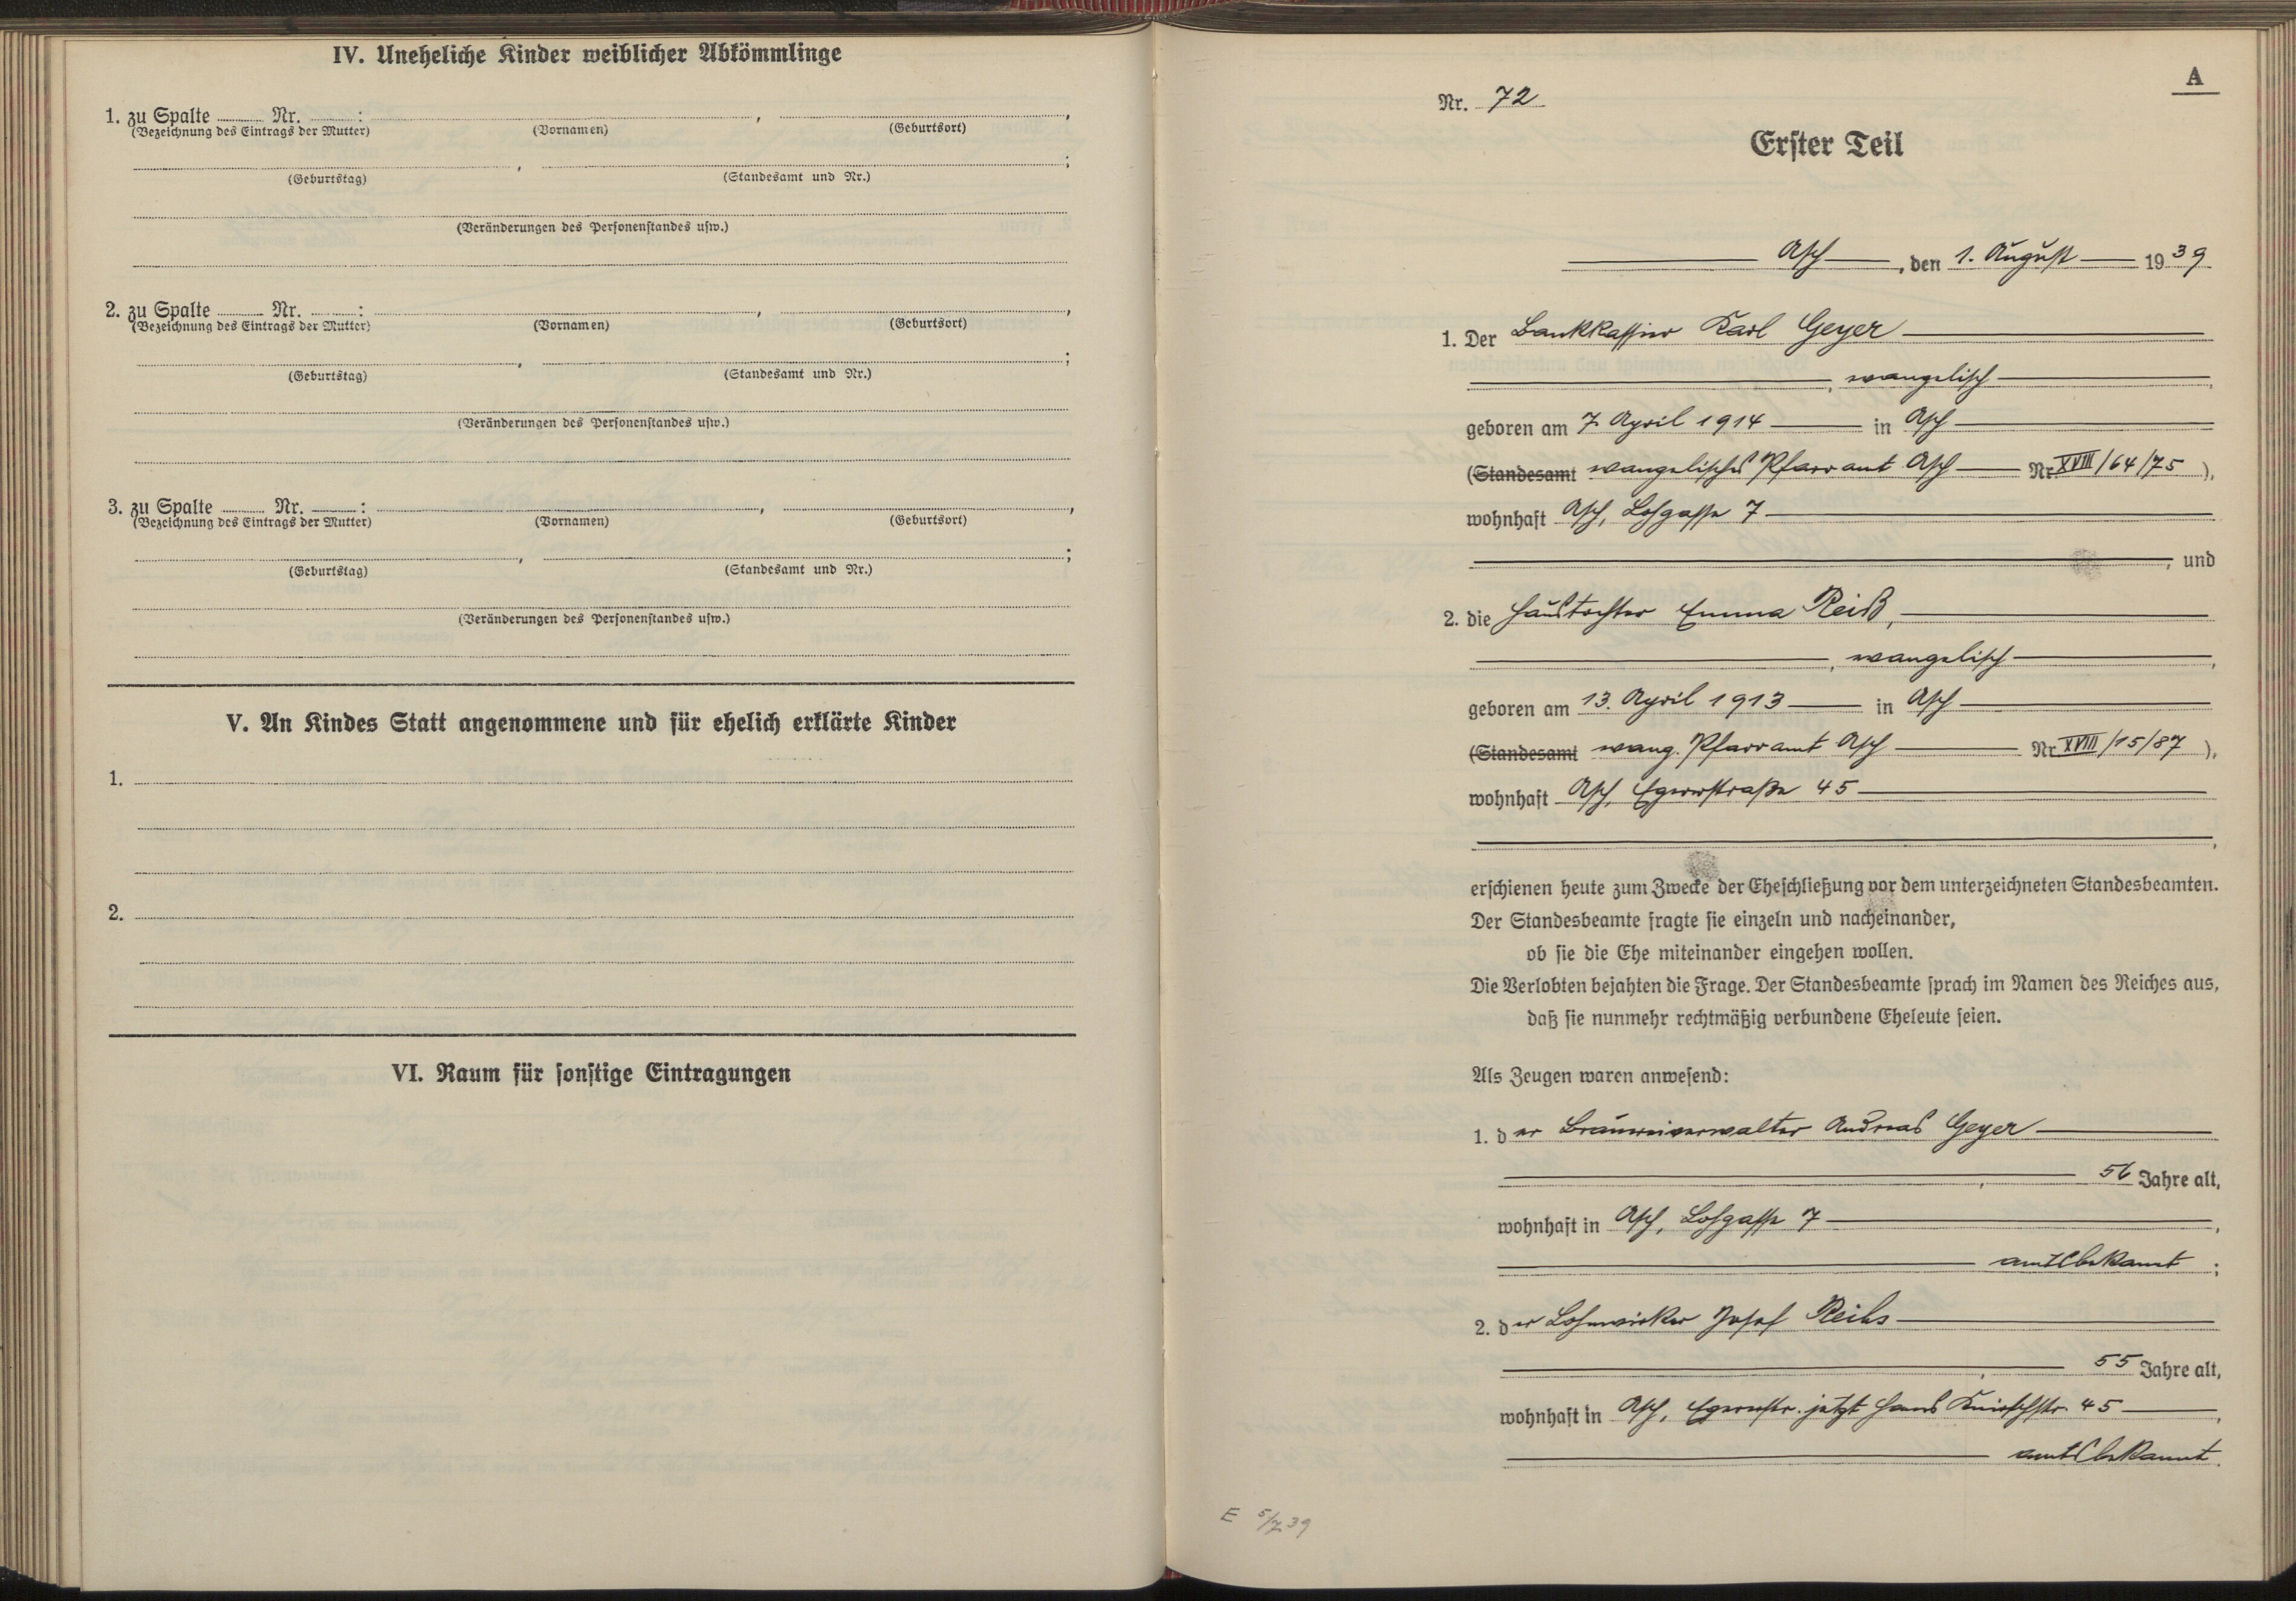 IV. Uneheliche Kinder weiblicher Abkömmlinge
1. zu Spalte ........ Nr. ........ : ........ , ........ ,
(Bezeichnung des Eintrags der Mutter) (Vornamen) (Geburtsort)
........ , ........ ;
(Geburtstag) (Standesamt und Nr.)
(Veränderungen des Personenstandes usw.)
2. zu Spalte ........ Nr. ........ : ........ , ........ ,
(Bezeichnung des Eintrags der Mutter) (Vornamen) (Geburtsort)
........ , ........ ;
(Geburtstag) (Standesamt und Nr.)
(Veränderungen des Personenstandes usw.)
3. zu Spalte ........ Nr. ........ : ........ , ........ ,
(Bezeichnung des Eintrags der Mutter) (Vornamen) (Geburtsort)
........ , ........ ;
(Geburtstag) (Standesamt und Nr.)
(Veränderungen des Personenstandes usw.)
V. An Kindes Statt angenommene und für ehelich erklärte Kinder
1.
2.
VI. Raum für sonstige Eintragungen
A
Nr. 72
Erster Teil
Asch, den 1. August 1939
1. Der Bankkassier Karl Geyer
, evangelisch ,
geboren am 7. April 1914 in Asch
(Standesamt evangelisches Pfarramt Asch Nr. XVIII/64/75 ),
wohnhaft Asch, Lohgasse 7
, und
2. die Haustochter Emma Reiß,
, evangelisch ,
geboren am 13. April 1913 in Asch
(Standesamt evang. Pfarramt Asch Nr. XVIII/15/87 ),
wohnhaft Asch, Egererstraße 45
,
erschienen heute zum Zwecke der Eheschließung vor dem unterzeichneten Standesbeamten.
Der Standesbeamte fragte sie einzeln und nacheinander,
ob sie die Ehe miteinander eingehen wollen.
Die Verlobten bejahten die Frage. Der Standesbeamte sprach im Namen des Reiches aus,
daß sie nunmehr rechtmäßig verbundene Eheleute seien.
Als Zeugen waren anwesend:
1. der Brauereiverwalter Andreas Geyer
, 56 Jahre alt,
wohnhaft in Asch, Lohgasse 7 ,
amtsbekannt ;
2. der Lohnwirker Josef Reihs
, 55 Jahre alt,
wohnhaft in Asch, Egererstr. jetzt Hans Knirschstr. 45 ,
amtsbekannt.
E 5/7 39